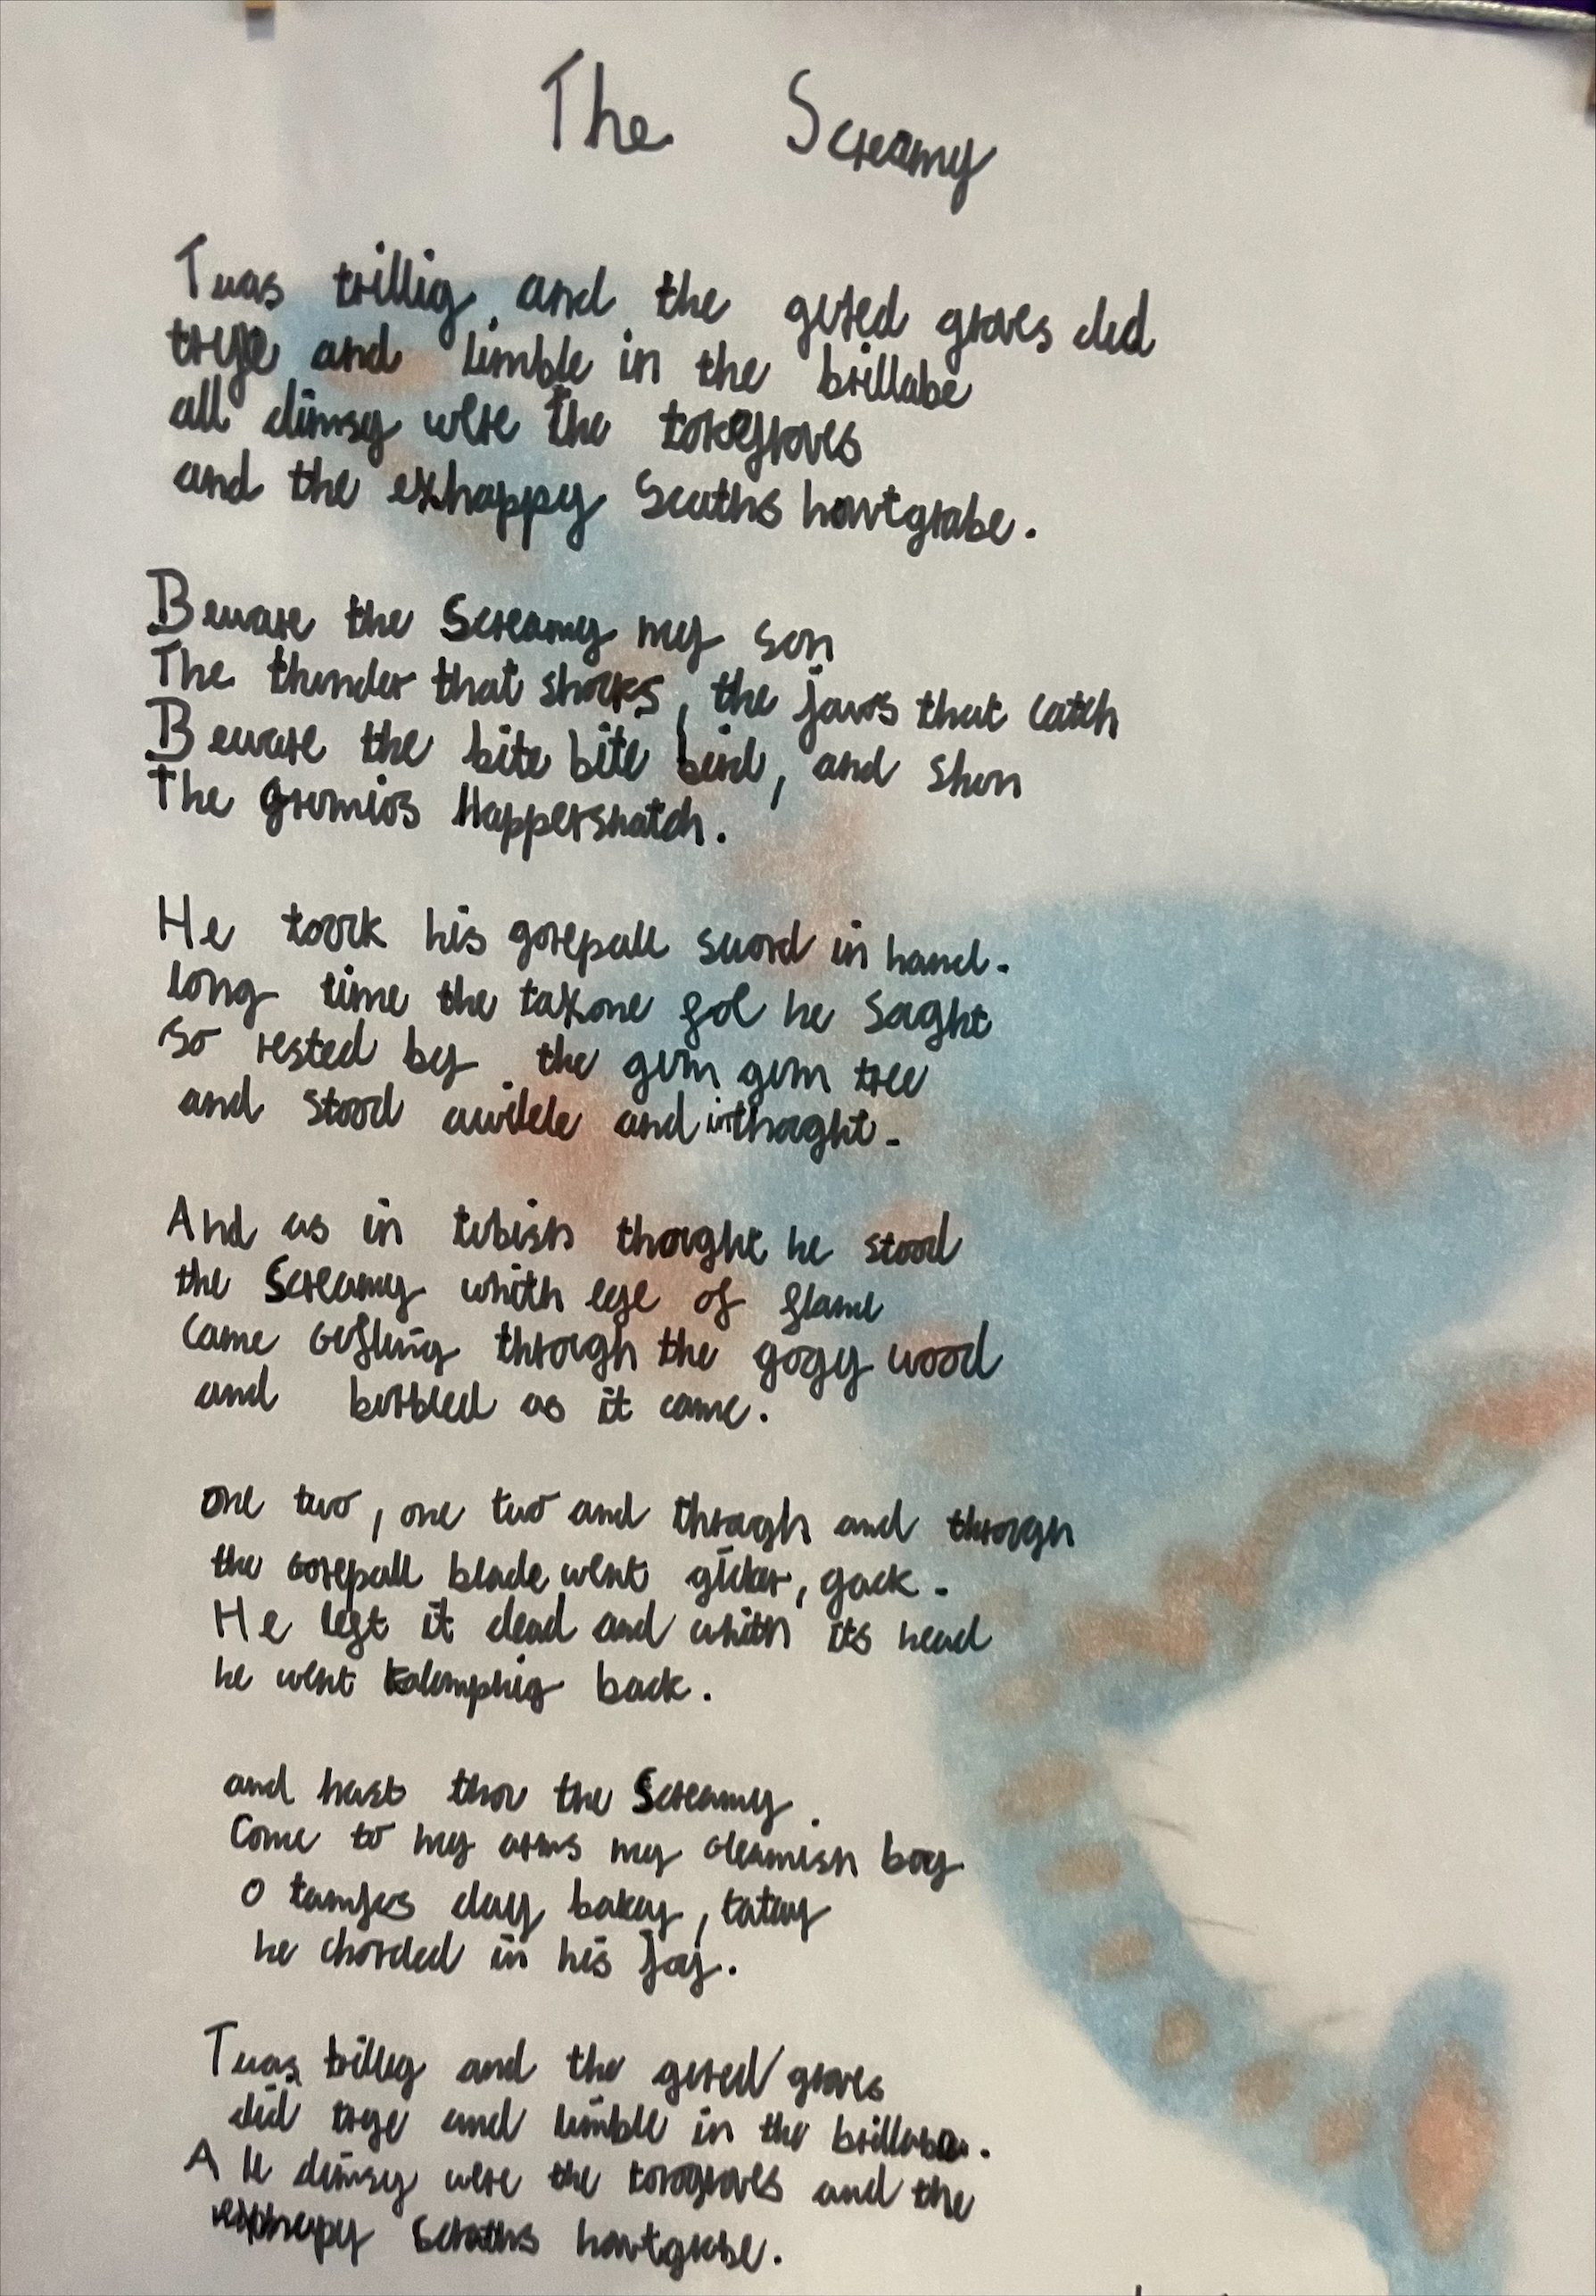 The Screamy
Twas trillig and the gered groves did
trye and limble in the brillabe
all dimsy were the toregroves
and the exhappy Scaths howtgrabe.
Beware the Screamy my son
The thunder that shocks, the jaws that catch
Beware the bite bite bird, and shun
The grumios Happersnatch.
He toock his gorepall sword in hand.
long time the taxone fol he saght
so rested by the gum gum tree
and stood awilele and inthoght.
And as in tubish thought he stood
the Screamy whith eye of flame
came gufling through the gogy wood
and burbled as it came.
one two, one two and through and through
the gorepall blade went glicker, gack.
He left it dead and whith its head
he went kalumphig back.
and hast thou the Screamy.
Come to my arms my gleamish boy
O tamjus day bakay, tatay
he chorded in his joy.
Twas billig and the gered groves
did trye and limble in the
All dimsy were the torogroves and the
Scraths howtgrabe.